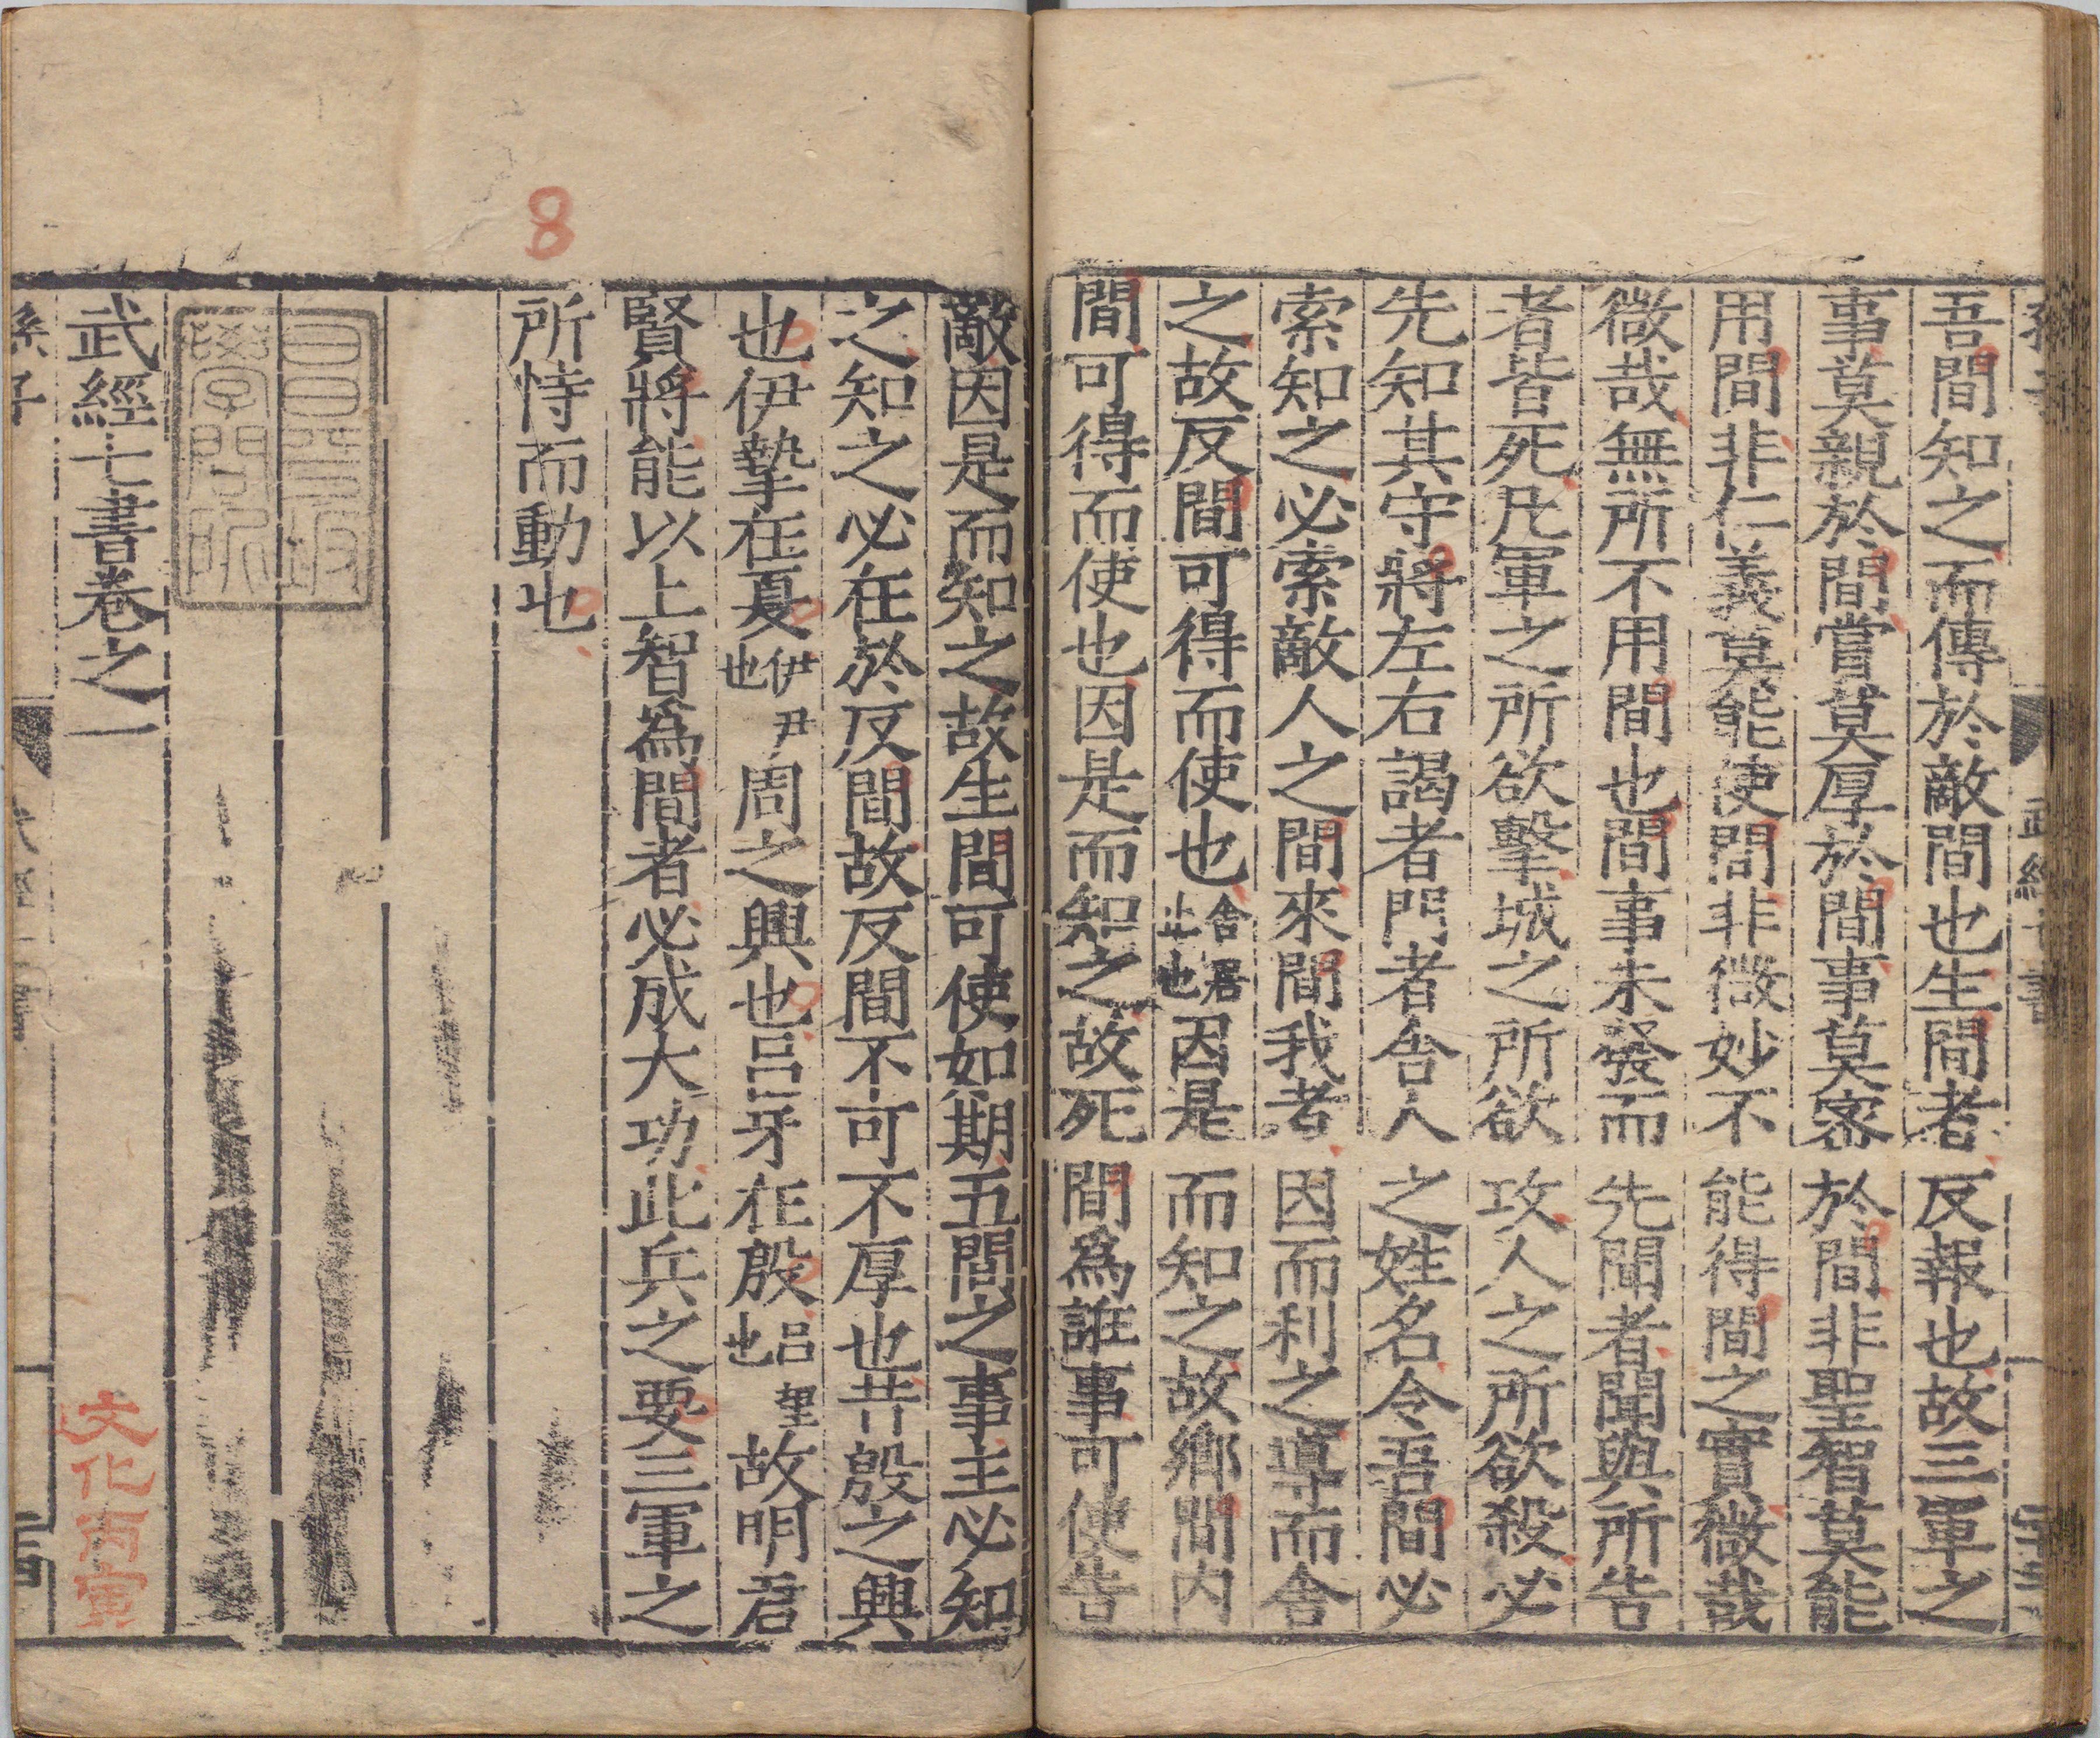 吾間知之而傳於敵間也生間者反報也故三軍之
事莫親於間嘗莫厚於間事莫密於間非聖智莫能
用間非仁義莫能使間非微妙不能得間之實微哉
微哉無所不用間也間事未發而先聞者聞與所告
者皆死凡軍之所欲擊城之所欲攻人之所欲殺必
先知其守將左右謁者門者舎人之姓名令吾間必
索知之必索敵人之間來間我者因而利之導而舎
之故反間可得而使也舎居止也因是而知之故鄉間内
間可得而使也因是而知之故死間爲誰事可使告
敵因是而知之故生間可使如期五間之事主必知
之知之必在於反間故反間不可不厚也昔殷之興
也伊摯在夏伊尹也周之興也呂牙在殷呂望也故明君
賢將能以上智爲間者必成大功此兵之要三軍之
所恃而動也
8
昌平坂
學問所
武經七書卷之一
文化丙寅
孫子